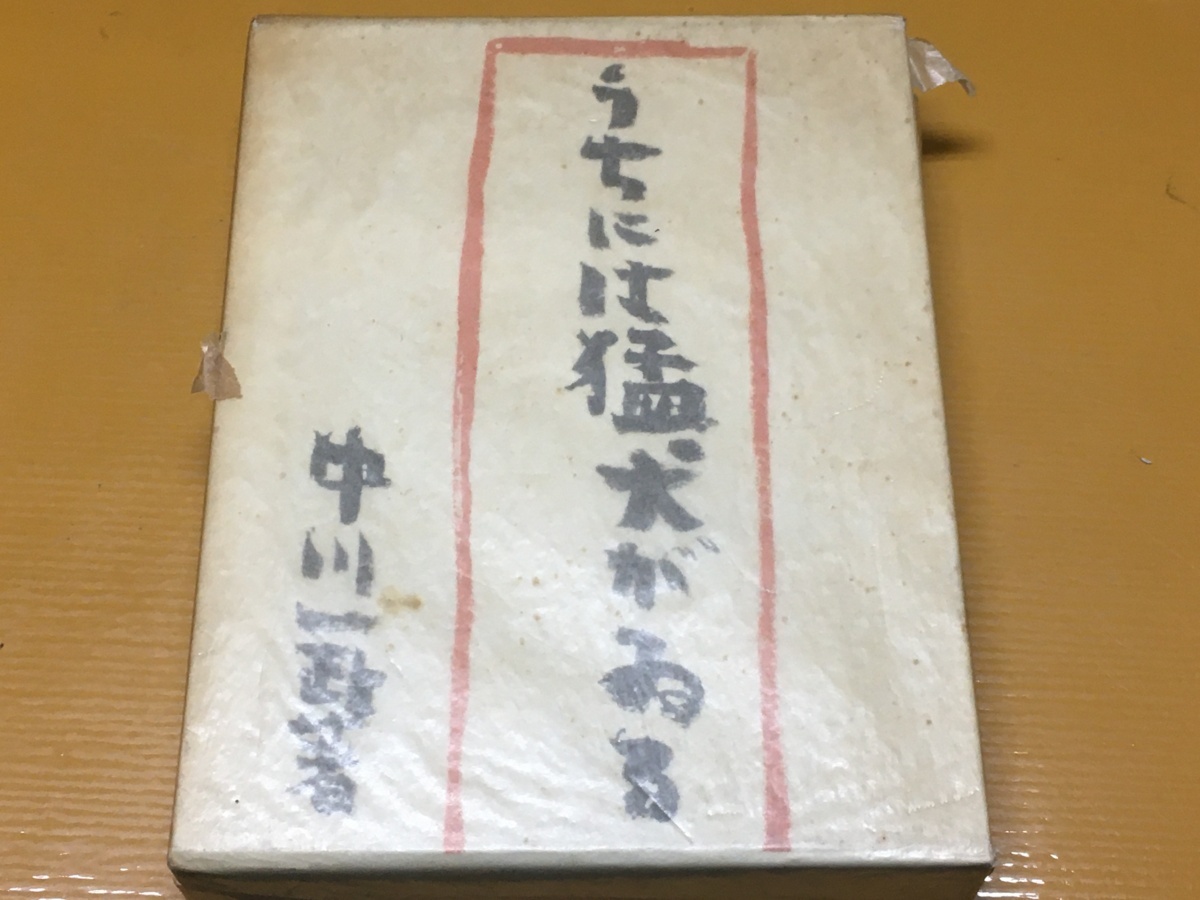 うちには猛犬がゐる
中川一政著